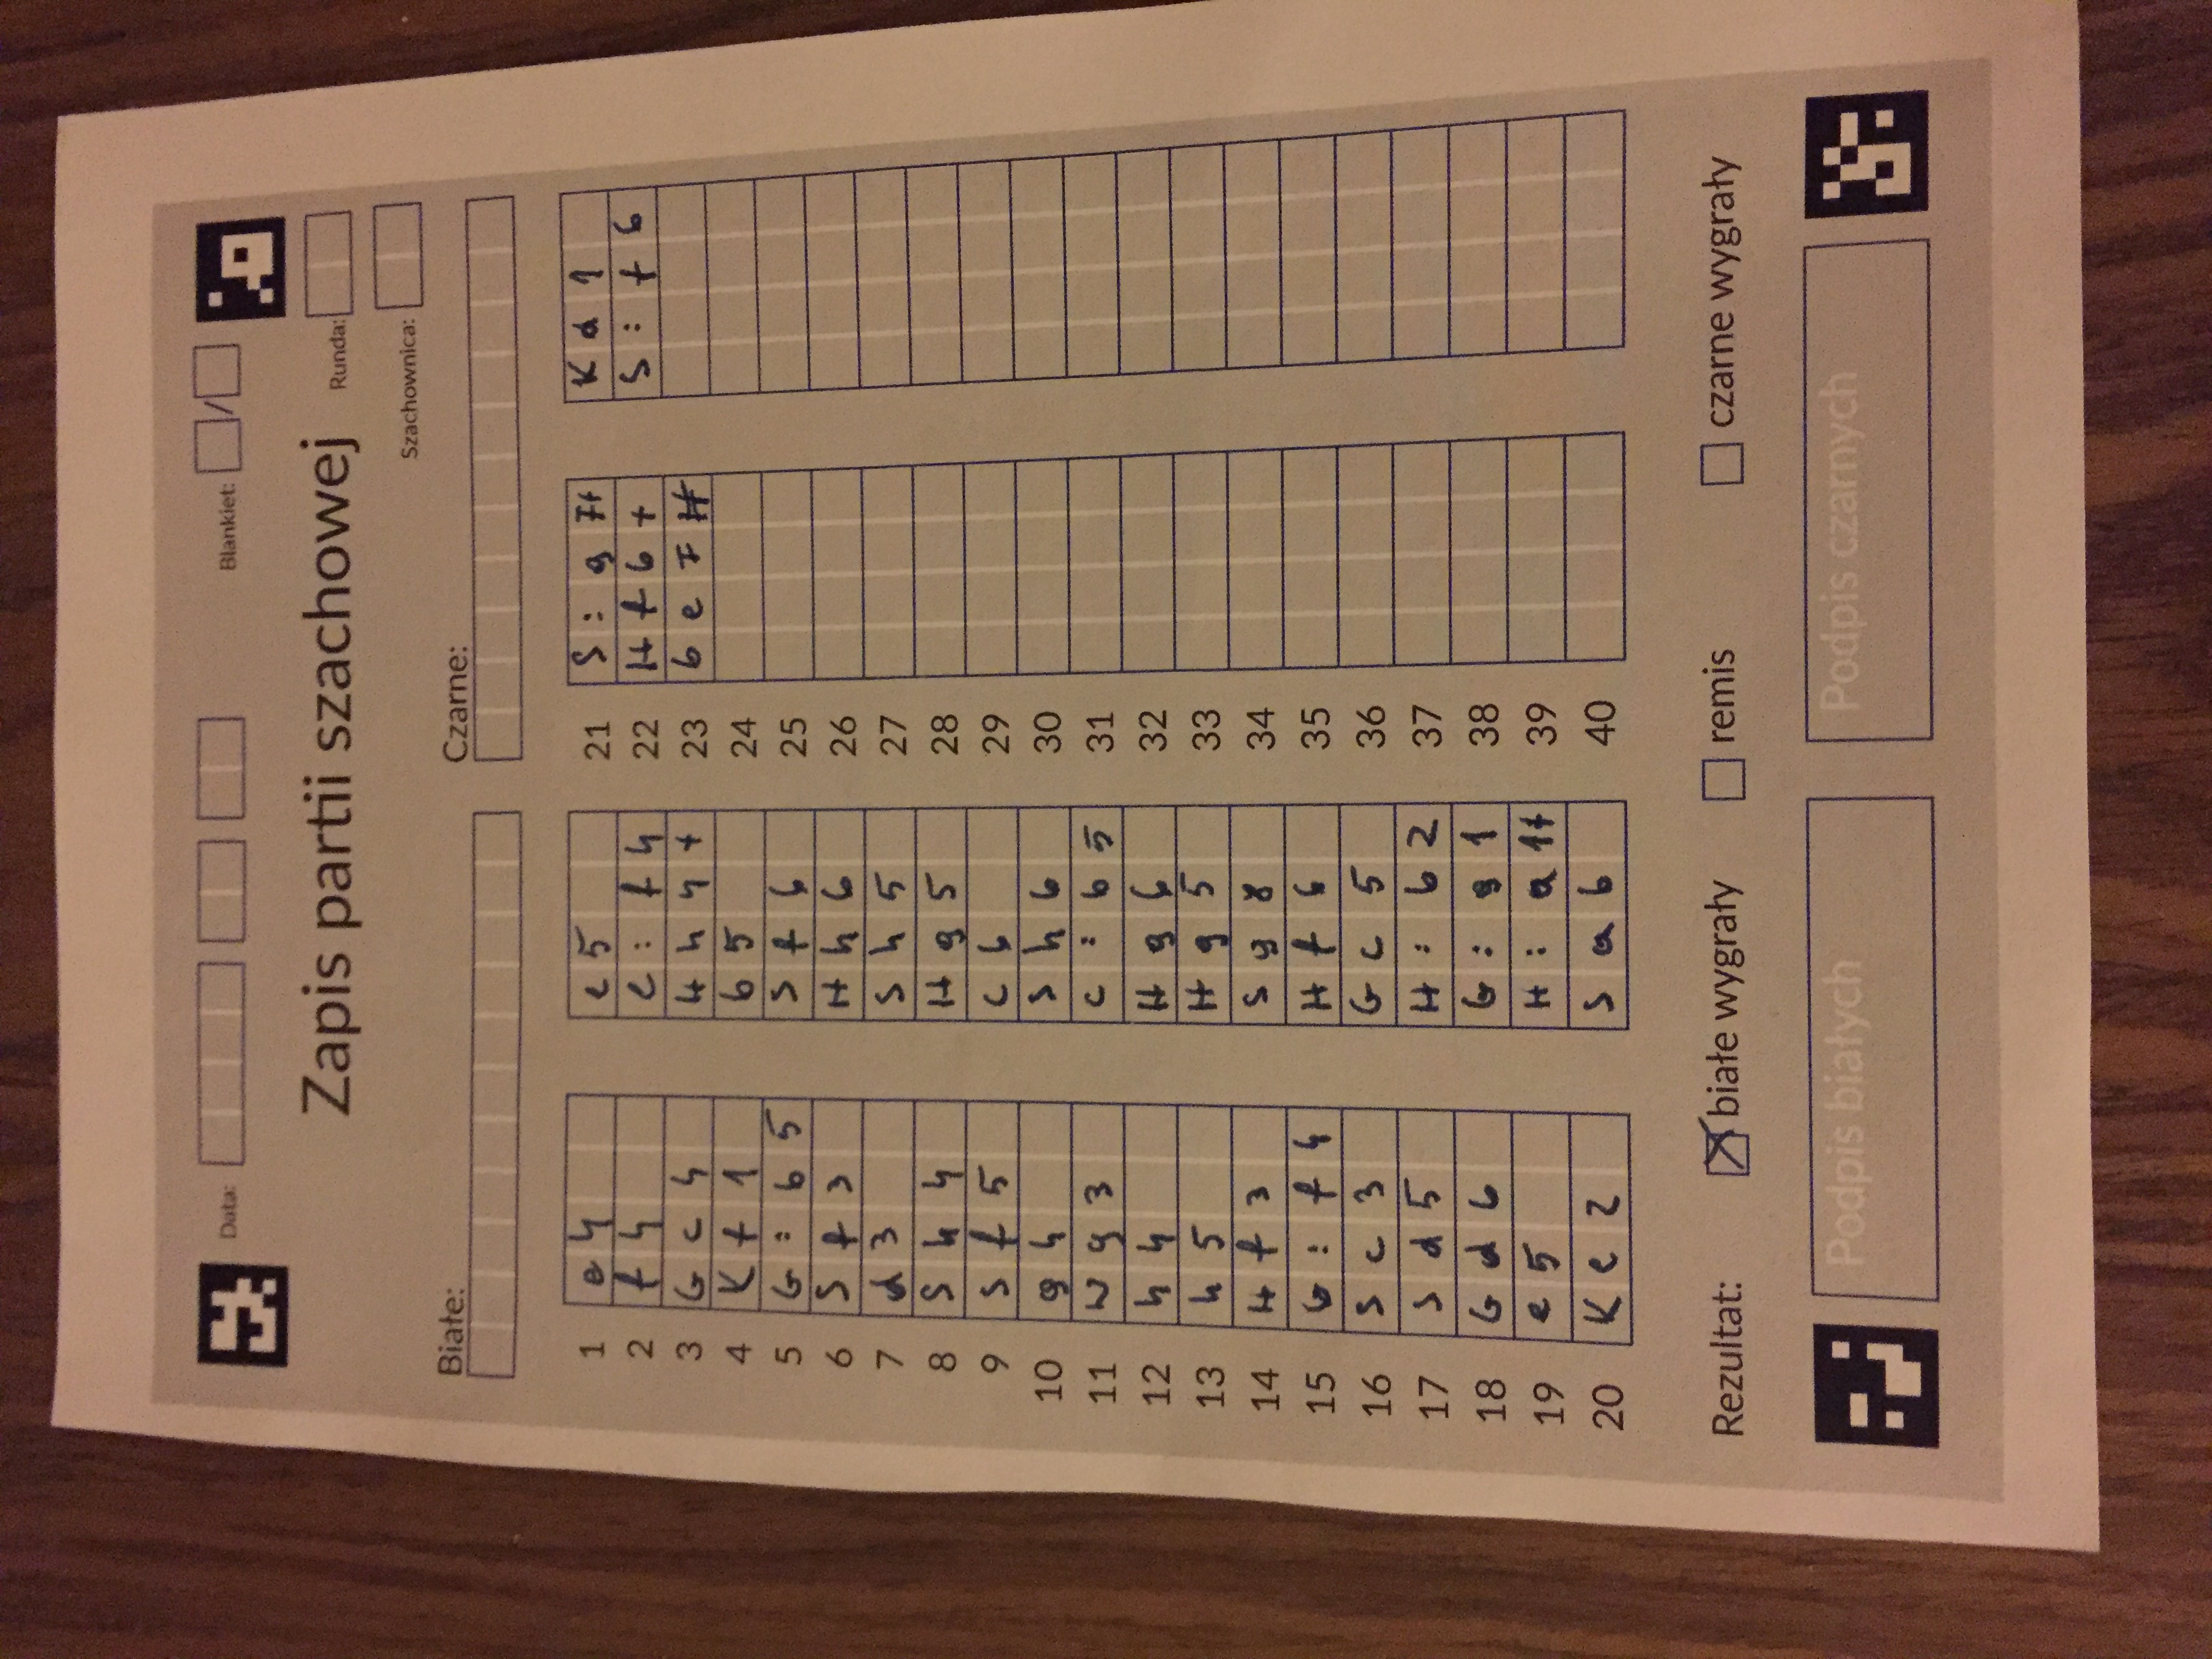 Data:
Blankiet: /
Zapis partii szachowej
Runda:
Szachownica:
Białe:
Czarne:
1 e4 e5
2 f4 e:f4
3 Gc4 Hh4+
4 Kf1 b5
5 G:b5 Sf6
6 Sf3 Hh6
7 d3 Sh5
8 Sh4 Hg5
9 Sf5 c6
10 g4 Sh6
11 Wg3 c:b5
12 h4 Hg6
13 h5 Hg5
14 Hf3 Sg8
15 G:f4 Hf6
16 Sc3 Gc5
17 Sd5 H:b2
18 Gd6 G:g1
19 e5 H:a1+
20 Ke2 Sa6
21 S:g7+ Kd1
22 Hf6+ S:f6
23 Ge7#
24
25
26
27
28
29
30
31
32
33
34
35
36
37
38
39
40
Rezultat: białe wygrały remis czarne wygrały
Podpis białych
Podpis czarnych